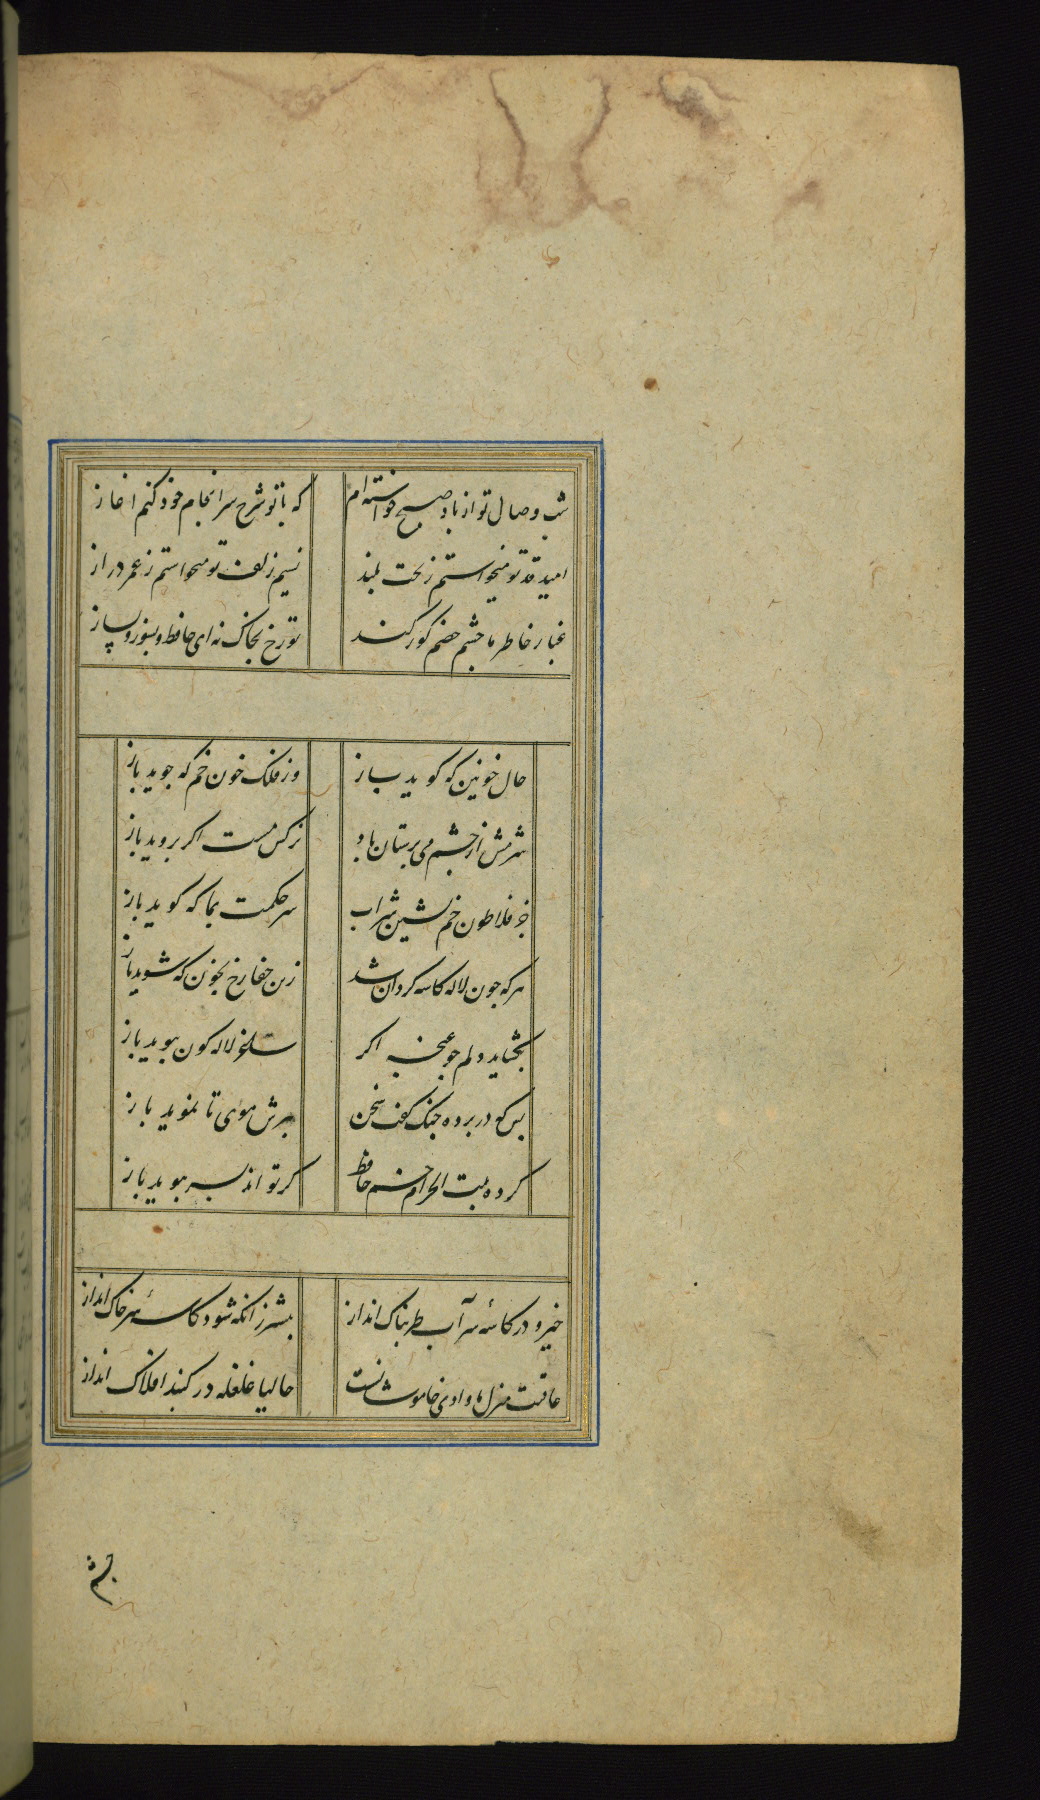 شب وصال تو از باد صبح خواسته ام که با تو شرح سرانجام خود کنم اغاز
امید قد تو میخواستم ز بخت بلند نسیم زلف تو میخواستم ز عمر دراز
غبار خاطر ما چشم خصم کور کند تو رخ بخاک نه ای حافظ و بسوز و بساز
حال خونین که کوید باز وز فلک خون خم که جوید باز
شرمش از چشم می پرستان باد نرکس مست اکر بروید باز
جز فلاطون خم نشین شراب سر حکمت بما که کوید باز
هر که چون لاله کاسه کردان شد زن جفا رخ بخون که شوید باز
بکشاید دلم چو غنچه اکر لاله کون ببوید باز
بس که در پرده چنک کفت سخن ببرش موی تا نموید باز
کرد بیت الحرام خم حافظ کر تواند بسر بپوید باز
خیز و در کاسه سر آب طربناک انداز پیشتر زانکه شود کاسه سر خاک انداز
عاقبت منزل ما وادی خاموشانست حالیا غلغله در کنبد افلاک انداز
چشم